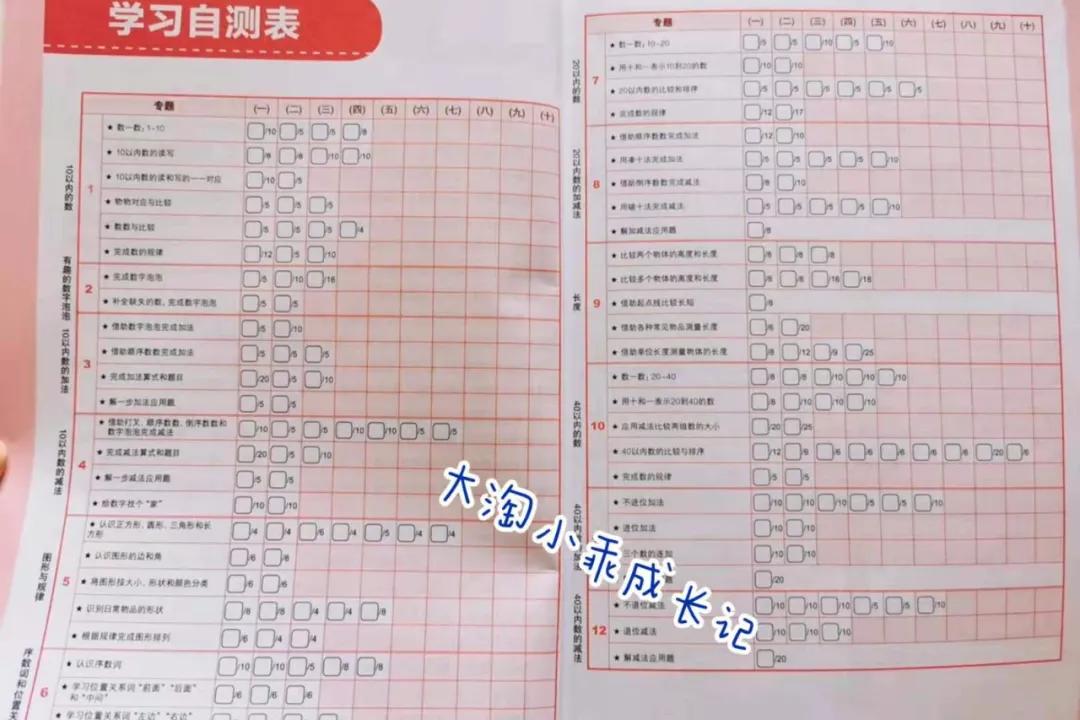 学习自测表
专题 (一) (二) (三) (四) (五) (六) (七) (八) (九) (十)
10以内的数
1
★ 数一数：1-10 /10 /5 /5 /8
★ 10以内数的读写 /8 /8 /10 /10
★ 10以内数的读和写的一一对应 /10 /5
★ 物物对应与比较 /5 /5 /5
★ 数数与比较 /5 /5 /5 /4
★ 完成数的规律 /12 /5 /10
有趣的数字泡泡
2
★ 完成数字泡泡 /5 /10 /16
★ 补全缺失的数，完成数字泡泡 /5 /5
10以内数的加法
3
★ 借助数字泡泡完成加法 /5 /10
★ 借助顺序数数完成加法 /5 /5 /5
★ 完成加法算式和题目 /20 /5 /10
★ 解一步加法应用题 /5 /5
10以内数的减法
4
★ 借助打叉、顺序数数、倒序数数和
数字泡泡完成减法 /10 /5 /5 /10 /10 /5 /5
★ 完成减法算式和题目 /20 /5 /10
★ 解一步减法应用题 /5 /5
★ 给数字找个“家” /10 /10
图形与规律
5
★ 认识正方形、圆形、三角形和长
方形 /4 /4 /6 /4 /5 /4 /4
★ 认识图形的边和角 /6 /8
★ 将图形按大小、形状和颜色分类 /6 /6
★ 识别日常物品的形状 /8 /8 /4 /4 /8
★ 根据规律完成图形排列 /6 /4 /4
序数词和位置关
6
★ 认识序数词 /10 /10 /5 /8 /8
★ 学习位置关系词“前面”“后面”
和“中间” /6 /6 /6
★ 学习位置关系词“左边”“右边”
专题 (一) (二) (三) (四) (五) (六) (七) (八) (九) (十)
20以内的数
7
★ 数一数：10-20 /5 /5 /10 /5 /10
★ 用十和一表示10到20的数 /10 /10
★ 20以内数的比较和排序 /5 /5 /5 /5 /5 /5
★ 完成数的规律 /12 /17
20以内数的加减法
8
★ 借助顺序数数完成加法 /12 /10
★ 用凑十法完成加法 /5 /5 /5 /5 /10
★ 借助倒序数数完成减法 /8 /10
★ 用破十法完成减法 /5 /5 /5 /5 /10
★ 解加减法应用题 /8
长度
9
★ 比较两个物体的高度和长度 /8 /8 /8
★ 比较多个物体的高度和长度 /8 /8 /16 /16
★ 借助起点线比较长短 /8
★ 借助各种常见物品测量长度 /6 /20
★ 借助单位长度测量物体的长度 /8 /12 /9 /25
40以内的数
10
★ 数一数：20-40 /8 /8 /10 /10 /10
★ 用十和一表示20到40的数 /8 /10 /10 /10
★ 应用减法比较两组数的大小 /20 /25
★ 40以内数的比较与排序 /12 /6 /6 /6 /6 /6 /6 /20 /6
★ 完成数的规律 /5 /5
40以内
★ 不进位加法 /10 /10 /10 /5 /5 /10
★ 进位加法 /10 /10
三个数的连加 /10 /10
/20
40以内数的减法
12
★ 不退位减法 /10 /10 /10 /5 /5 /10
★ 退位减法 /10 /10 /10
★ 解减法应用题 /20
大淘小乖成长记